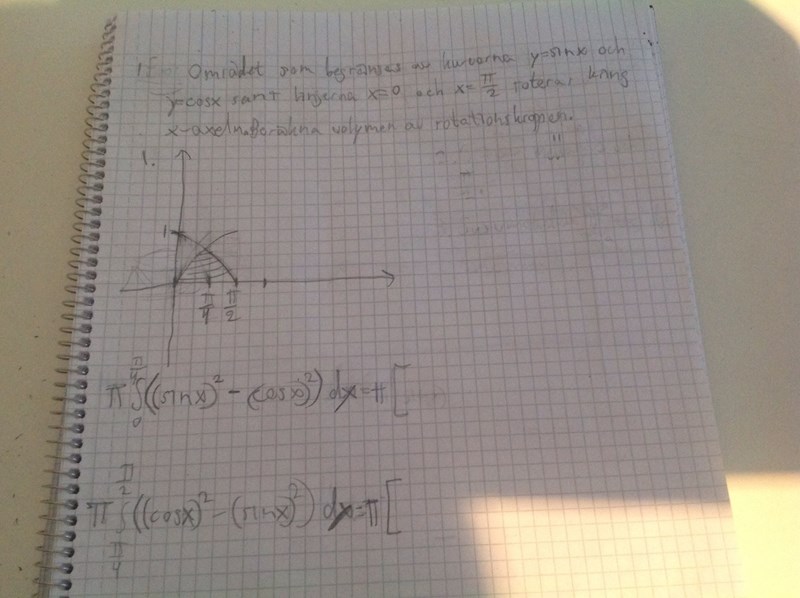 Området som begränses av kurvorna y=sinx och
y=cosx samt linjerna x=0 och x=π/2 roterar kring
x-axeln. Beräkna volymen av rotationskroppen.
1.
1
π/4 π/2
π ∫₀^(π/4) ((sinx)² - (cosx)²) dx = π [
π ∫_(π/4)^(π/2) ((cosx)² - (sinx)²) dx = π [